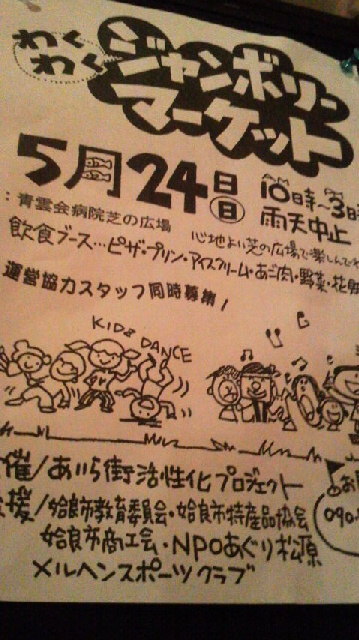 わくわく
ジャンボリー
マーケット
5月24日(日) 10時〜3時
雨天中止
:青雲会病院芝の広場
心地よい芝の広場で楽しんで
飲食ブース…ピザ・プリン・アイスクリーム・あご肉・野菜・花
運営協力スタッフ同時募集!
KIDS DANCE
催/あいら街活性化プロジェクト
援/姶良市教育委員会・姶良市特産品協会
姶良市商工会・NPOあぐり松原
メルヘンスポーツクラブ
090